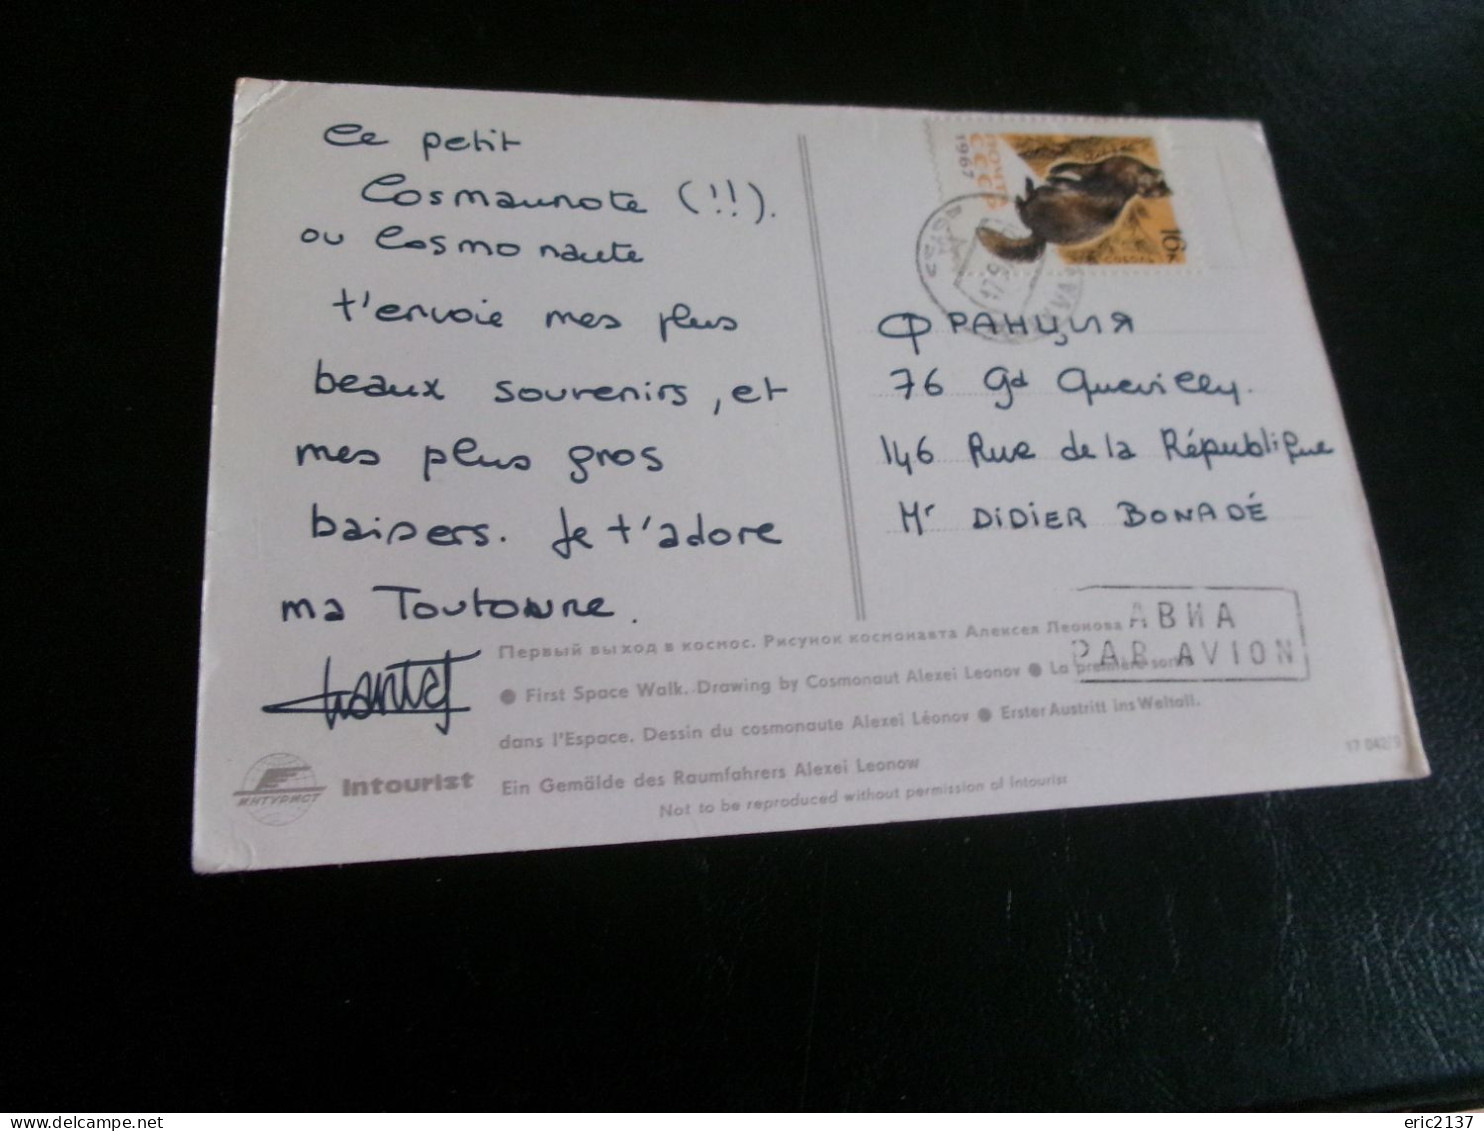 Ce petit
Cosmaunote (!!).
ou Cosmonaute
t'envoie mes plus
beaux souvenirs, et
mes plus gros
baisers. Je t'adore
ma Toutoune.
ПОЧТА
СССР
1967
16к
ФРАНЦИЯ
76 Gd Quevilly.
146 Rue de la République
Mr DIDIER BONADÉ
АВИА
PAR AVION
Первый выход в космос. Рисунок космонавта Алексея Леонова
● First Space Walk. Drawing by Cosmonaut Alexei Leonov ● La première sortie
dans l'Espace. Dessin du cosmonaute Alexei Léonov ● Erster Austritt ins Weltall.
Ein Gemälde des Raumfahrers Alexei Leonow
Not to be reproduced without permission of Intourist
ИНТУРИСТ
Intourist
eric2137